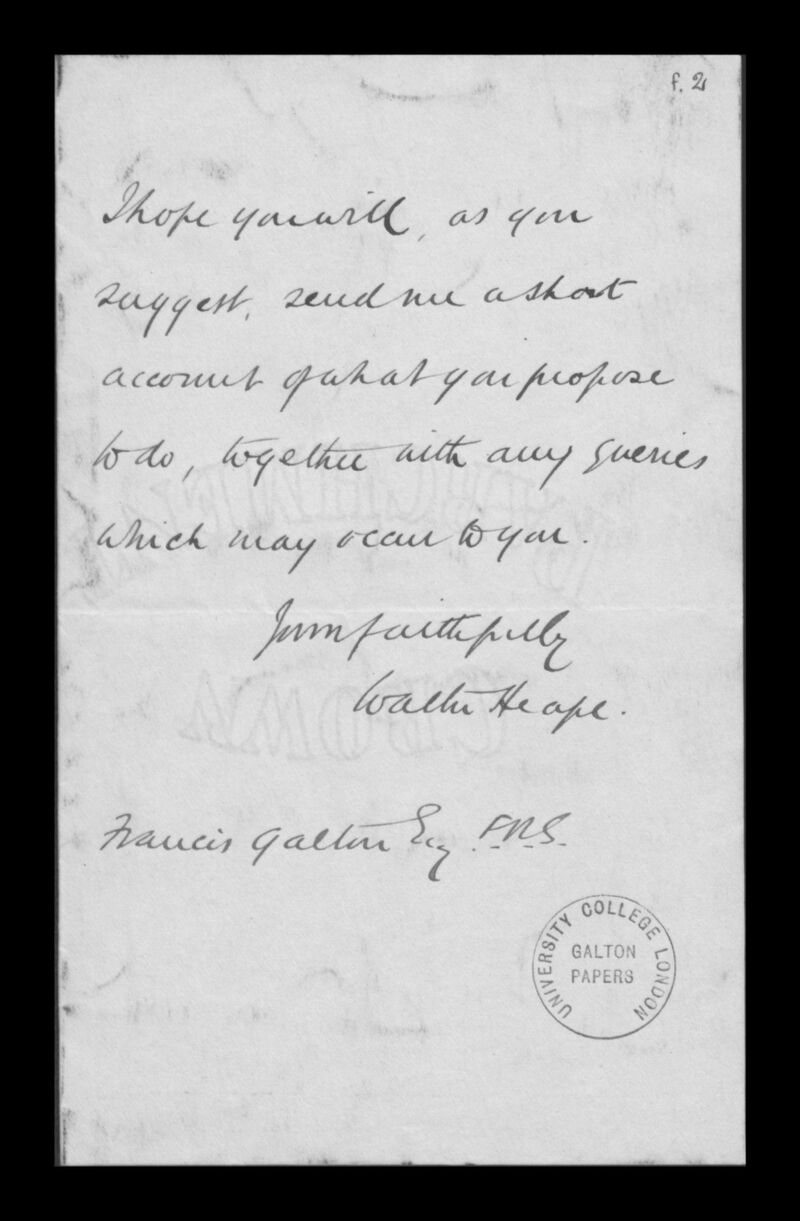 f. 2
I hope you will, as you
suggest, send me a short
account of what you propose
to do, together with any queries
which may occur to you.
Yours faithfully
Walter Heape.
Francis Galton Esq F.R.S.
UNIVERSITY COLLEGE LONDON
GALTON
PAPERS
CROWN